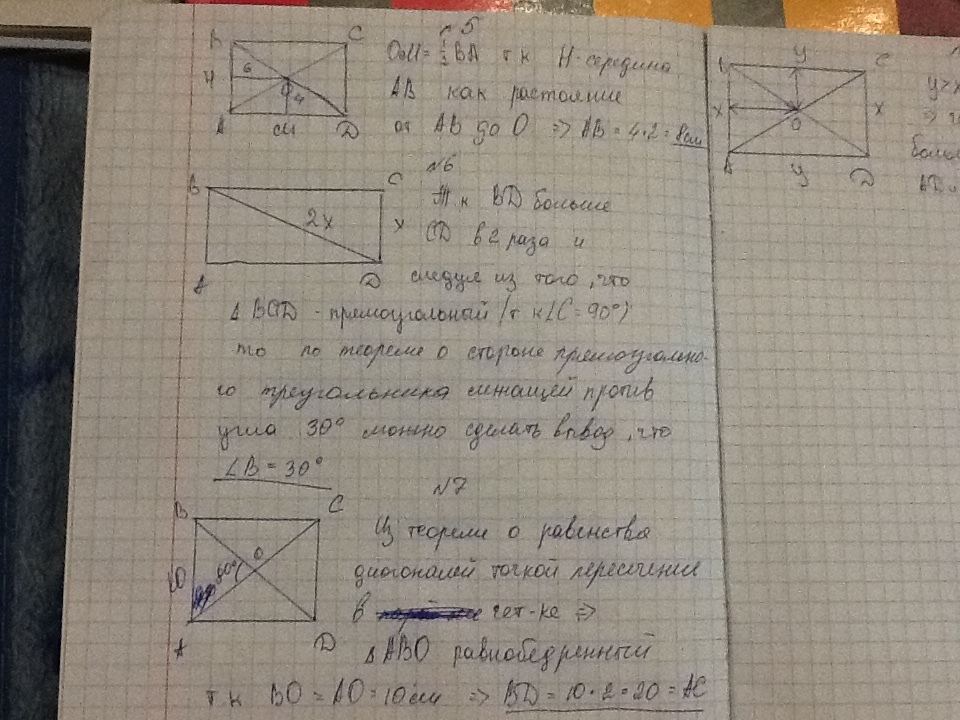 №5
B C
6
H
O 4
A см D
OH = 1/2 BA т к H-середина
AB как растояние
от AB до O => AB = 4·2 = 8см
№6
B C
2x x
A D
т.к BD больше
CD в 2 раза и
следуя из того, что
Δ BCD - прямоугольный (т к ∠C = 90°)
то по теореме о стороне прямоугольно-
го треугольника лежащей против
угла 30° можно сделать вывод, что
∠B = 30°
№7
B C
10 60° O
A D
Из теореме о равенства
диогоналей точкой пересичение
в чет-ке =>
Δ ABO равнобедренный
т.к BO = AO = 10см => BD = 10·2 = 20 = AC
y C
x O x
A y D
y > x
=>